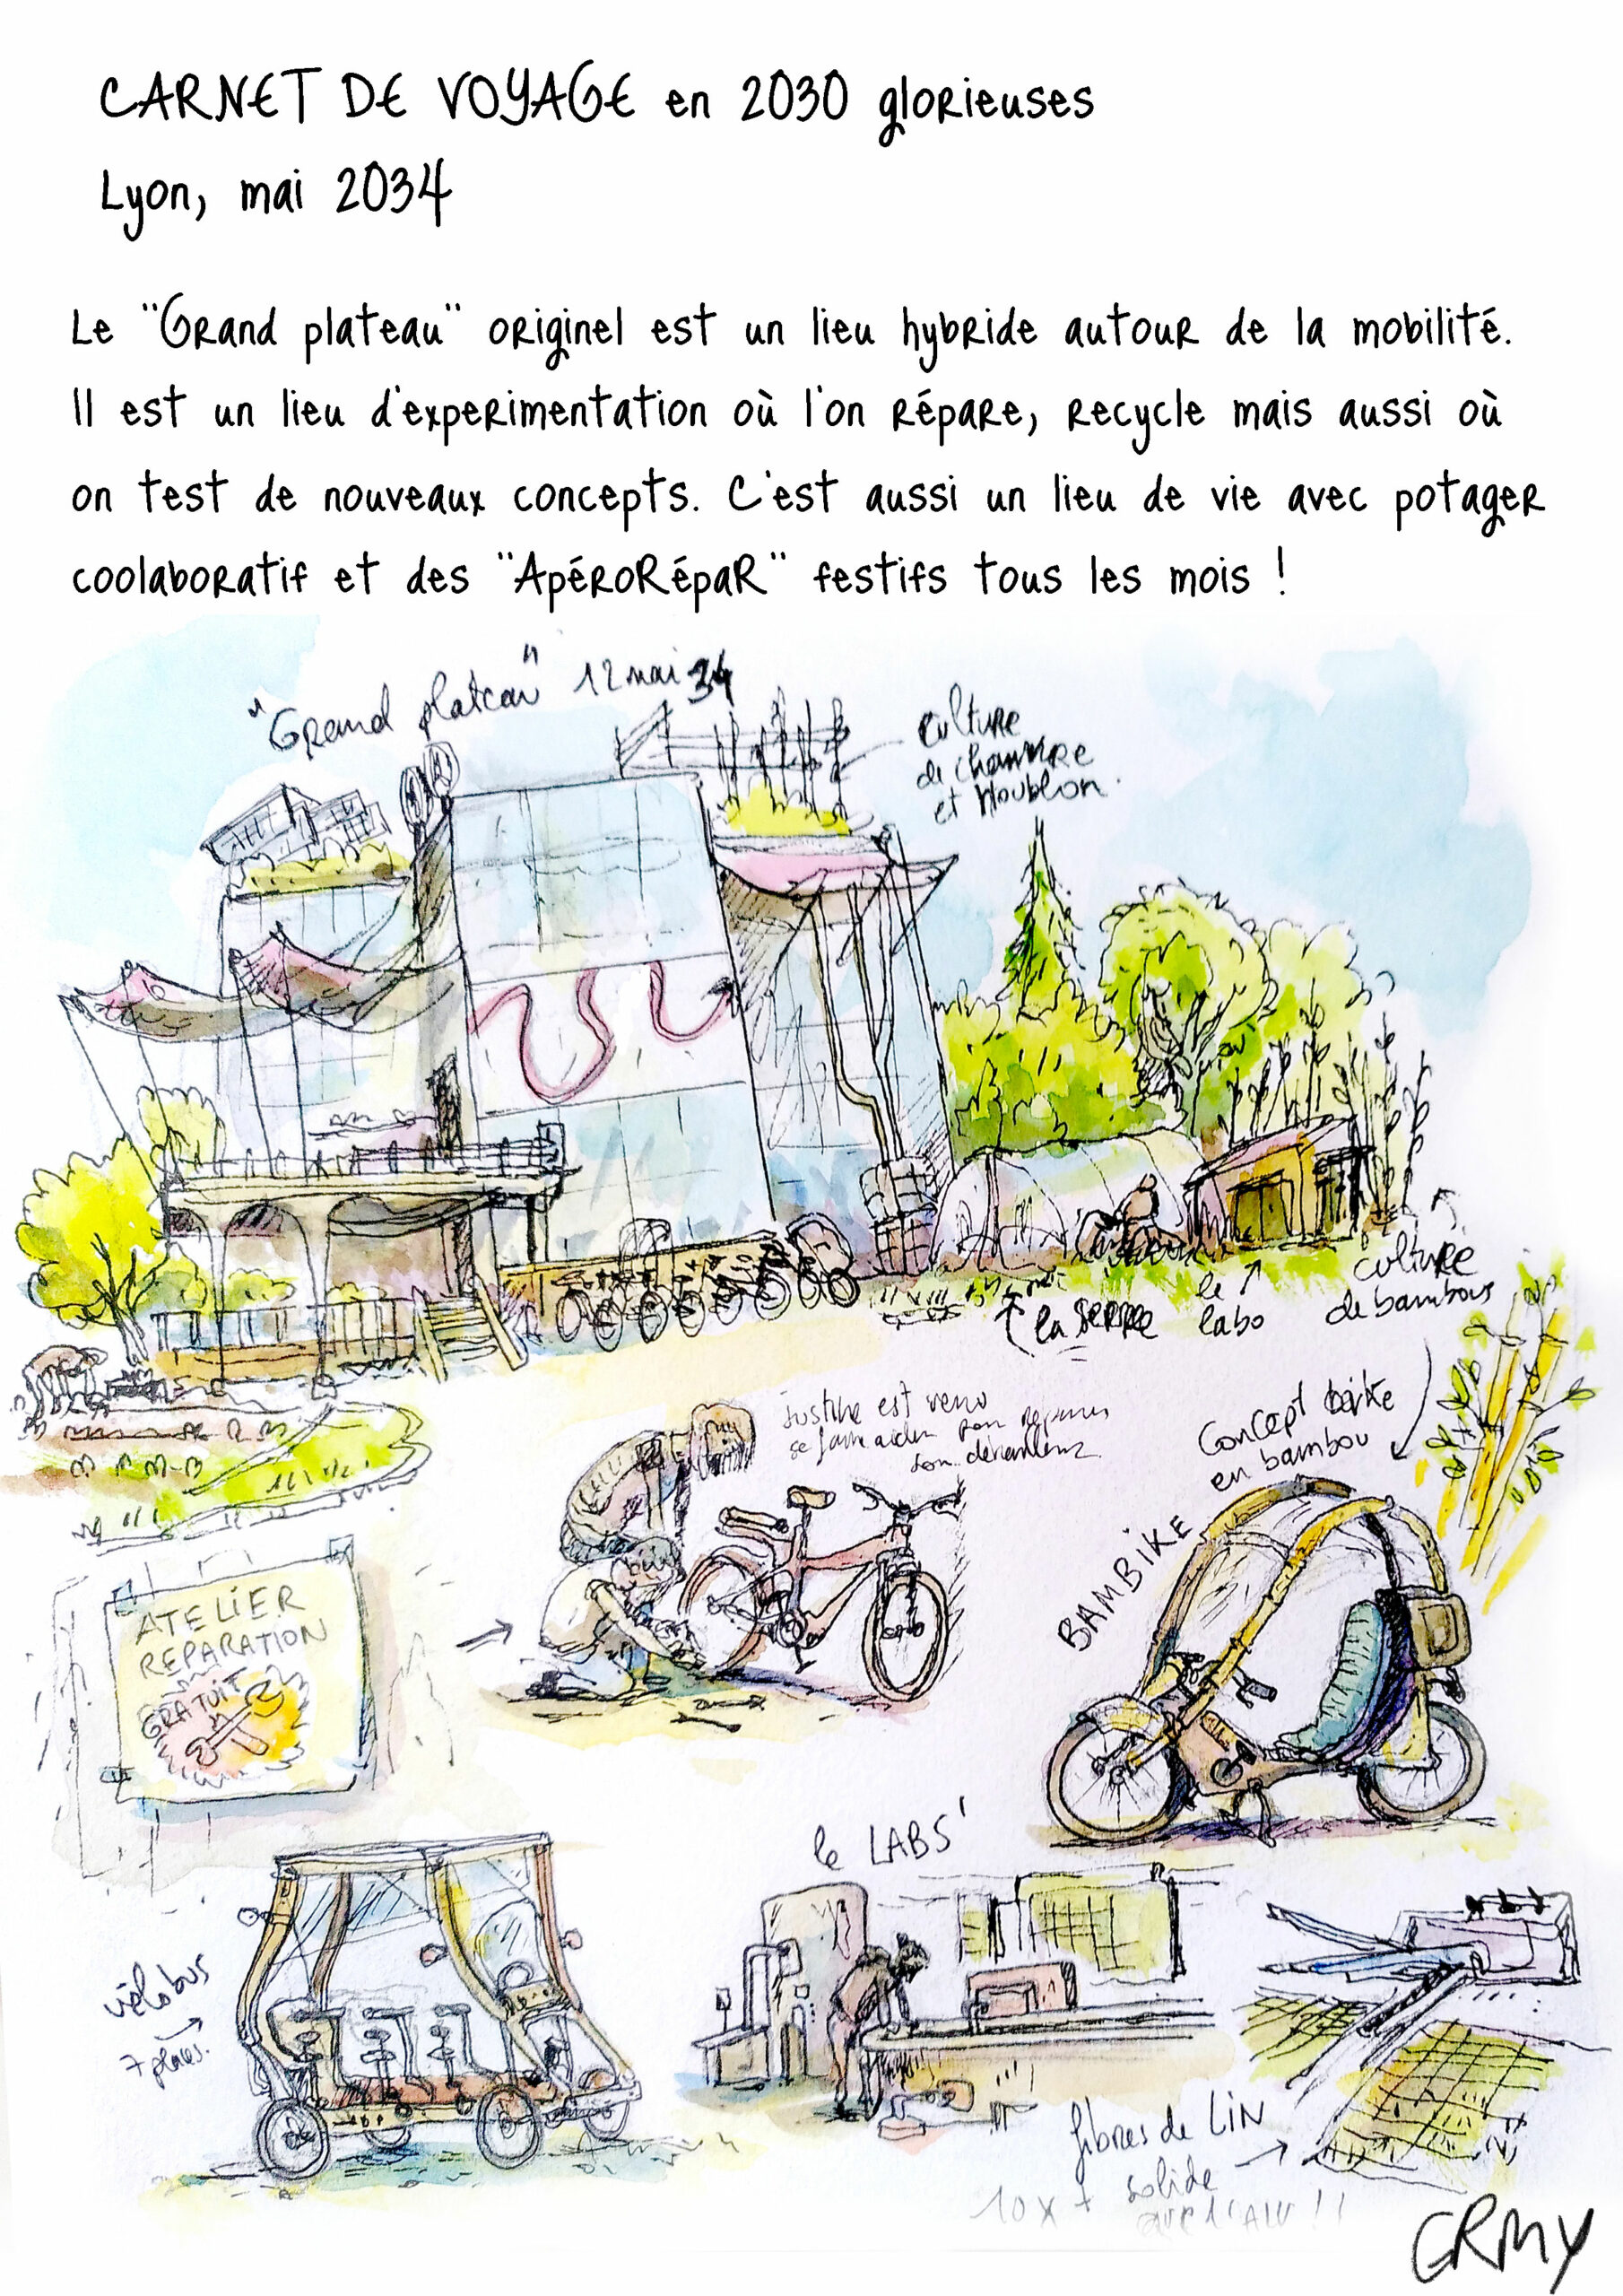 CARNET DE VOYAGE en 2030 glorieuses
Lyon, mai 2034
Le "Grand plateau" originel est un lieu hybride autour de la mobilité.
Il est un lieu d'experimentation où l'on répare, recycle mais aussi où
on test de nouveaux concepts. C'est aussi un lieu de vie avec potager
coolaboratif et des "ApéroRépar" festifs tous les mois !
"Grand plateau" 12 mai 34
culture
de chanvre
et houblon.
la serre
le
labo
culture
de bambous
Justine est venu
se faire aider pour réparer
son dérailleur
Concept bike
en bambou
BAMBIKE
ATELIER
REPARATION
GRATUIT
vélobus
7 places.
le LABS'
fibres de LIN
10 x + solide
que l'ALU !!
GRMY